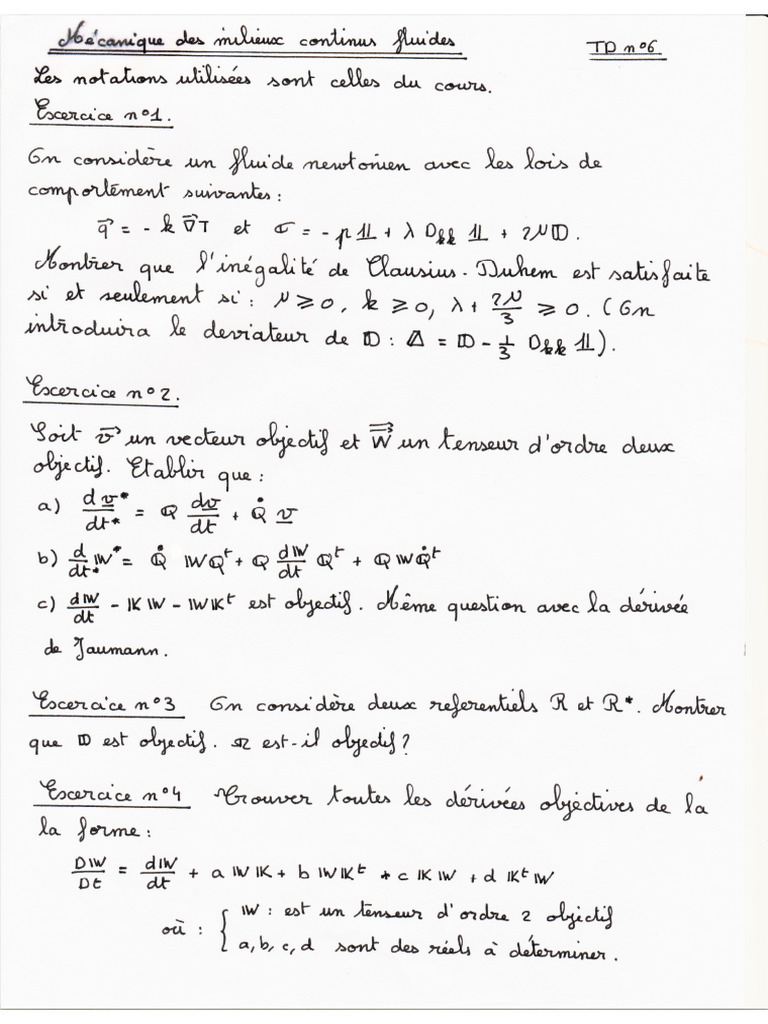 Mécanique des milieux continus fluides
TD n°6
Les notations utilisées sont celles du cours.
Exercice n°1.
On considère un fluide newtonien avec les lois de
comportement suivantes :
q⃗ = - k ∇⃗T et σ = - p 𝟙 + λ D_kk 𝟙 + 2μ𝔻.
Montrer que l'inégalité de Clausius-Duhem est satisfaite
si et seulement si : μ ⩾ 0, k ⩾ 0, λ + 2μ/3 ⩾ 0. (On
introduira le deviateur de 𝔻 : Δ = 𝔻 - 1/3 D_kk 𝟙).
Exercice n°2.
Soit v⃗ un vecteur objectif et W⃗⃗ un tenseur d'ordre deux
objectif. Etablir que :
a) dv*/dt* = ℚ dv/dt + ℚ̇ v
b) d/dt* 𝕎* = ℚ̇ 𝕎ℚᵗ + ℚ d𝕎/dt ℚᵗ + ℚ𝕎ℚ̇ᵗ
c) d𝕎/dt - 𝕂𝕎 - 𝕎𝕂ᵗ est objectif. Même question avec la dérivée
de Jaumann.
Exercice n°3 On considère deux referentiels R et R*. Montrer
que 𝔻 est objectif. Ω est-il objectif ?
Exercice n°4 Trouver toutes les dérivées objectives de la
la forme :
D𝕎/Dt = d𝕎/dt + a 𝕎𝕂 + b 𝕎𝕂ᵗ + c 𝕂𝕎 + d 𝕂ᵗ𝕎
où : { 𝕎 : est un tenseur d'ordre 2 objectif
a, b, c, d sont des réels à déterminer.